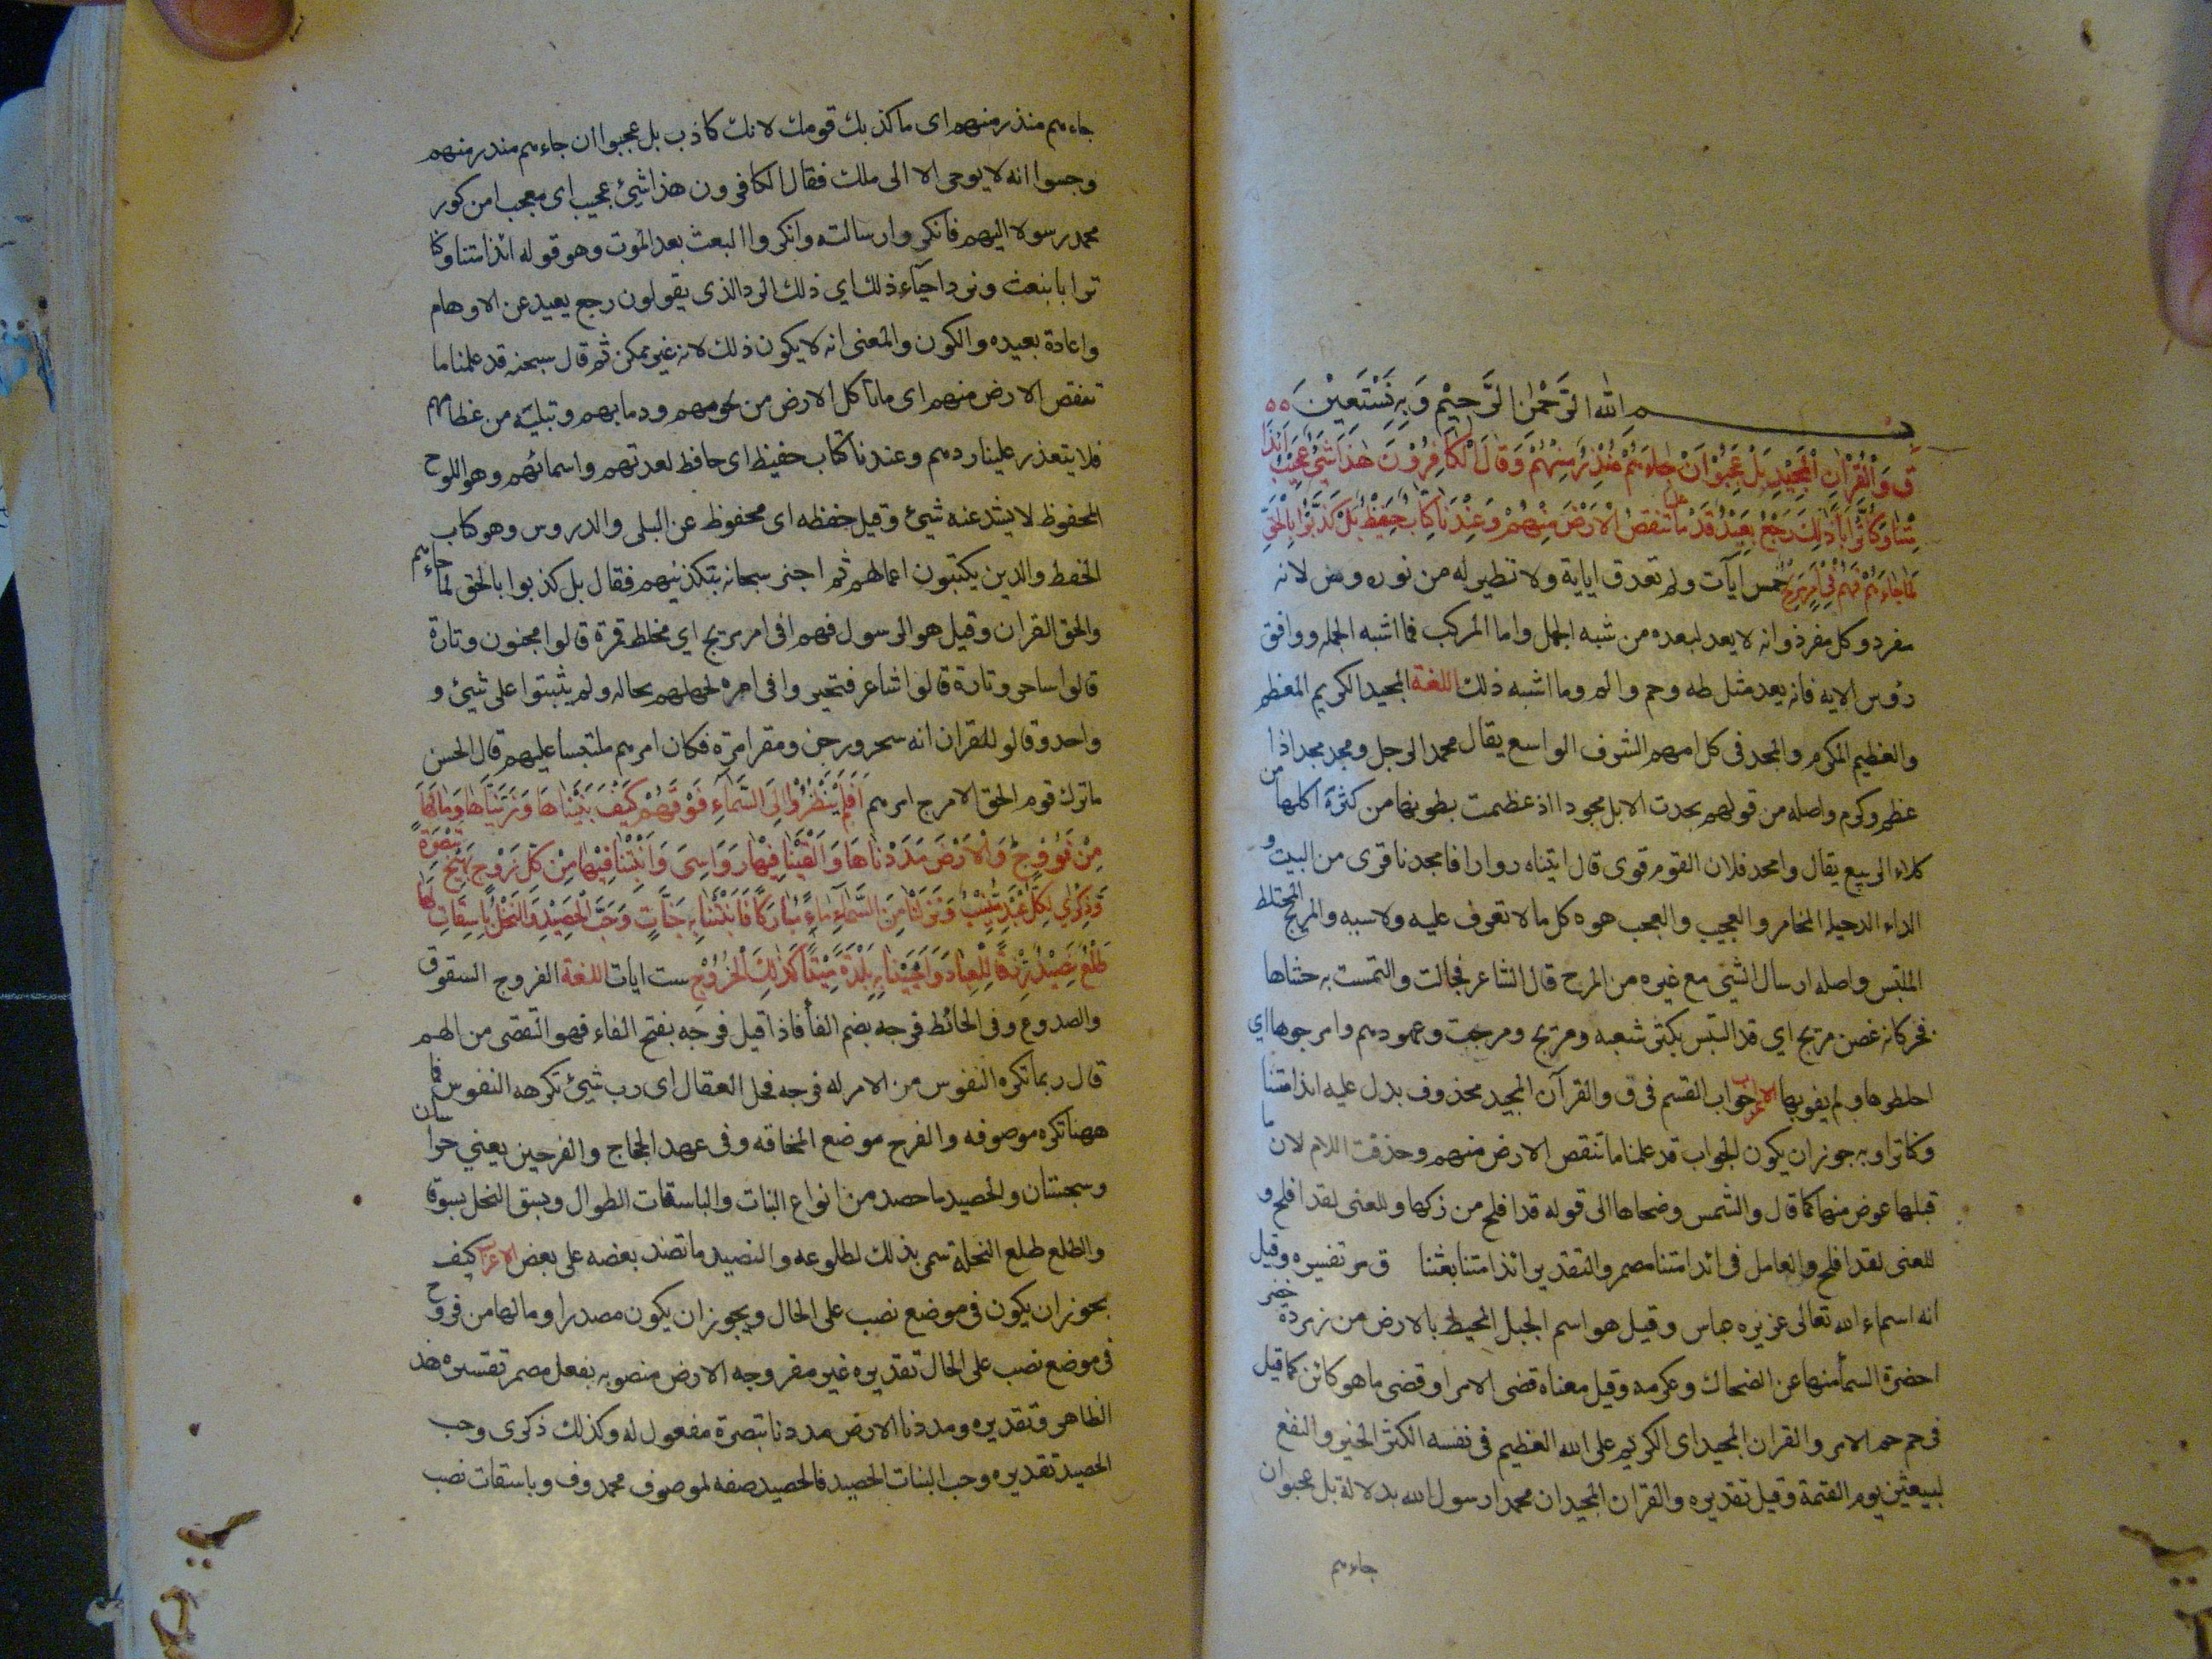 بسم الله الرَّحْمٰنِ الرَّحِيْمِ وَبِهِ نَسْتَعِيْنُ
قٓ وَالْقُرْاٰنِ الْمَجِيْدِ بَلْ عَجِبُوْا اَنْ جَاءَهُمْ مُنْذِرٌ مِنْهُمْ وَقَالَ الْكَافِرُوْنَ هٰذَا شَيْئٌ عَجِيْبٌ اَئِذَا
مِتْنَا وَكُنَّا تُرَابًا ذٰلِكَ رَجْعٌ بَعِيْدٌ قَدْ عَلِ مَا تَنْقُصُ الْاَرْضُ مِنْهُمْ وَعِنْدَنَا كِتَابٌ حَفِيْظٌ بَلْ كَذَّبُوْا بِالْحَقِّ
لَمَّا جَاءَهُمْ فَهُمْ فِيْ اَمْرٍ مَرِيْجٍ خمس ايآت ولم تعد ق اياية ولا نظير له من نون وص لانه
مفرد وكل مفرد وانه لا يعد لبعده من شبه الجمل واما المركب فما اشبه الجمله ووافق
رؤس الايه فانه يعد مثل طه وحم والم وما اشبه ذلك اللغة المجيد الكريم المعظم
والعظيم المكرم والمجد فى كلامهم الشرف الواسع يقال مجد الرجل ومجد مجدا اذا
عظم وكرم واصله من قولهم بجدت الابل مجودا اذ عظمت بطونها من كثرة اكلها من
كلاء الربيع يقال وامجد فلان القوم قرى قال اتيناه زوارا فامجدنا قرى من البيت و
الداء الدخيل المخامر والعجيب والعجب هو كل ما لا تعرف عليه ولا سببه والمريج المختلط
الملتبس واصله ارسال الشئ مع غيره من المرج قال الشاعر فجالت والتمست به حشاها
فخر كانه غصن مريج اي قد التبس بكثر شعبه ومريج ومرجت وعهودهم وامرجوها اي
اخلطوها ولم يفوبها الاعراب جواب القسم فى ق والقرآن المجيد محذوف يدل عليه ائذا متنا
وكنا ترابا ويجوز ان يكون الجواب قد علمنا ما تنقص الارض منهم وحذفت اللام لان ما
قبلها عوض منها كما قال والشمس وضحاها الى قوله قد افلح من زكها وللعنى لقد افلح و
للعنى لقد افلح والعامل فى ائذا متنا مضمر والتقدير ائذا متنا بعثنا ق مر تفسيره وقيل
انه اسم اء الله تعالى عن بن عباس وقيل هو اسم الجبل المحيط بالارض من زمردة خضر
احضرة السمأ منها عن الضحاك وعكرمه وقيل معناه قضى الامر او قضى ما هو كائن كما قيل
فى حم حم الامر والقران المجيد اى الكريم على الله العظيم فى نفسه الكثر الخير والنفع
لتبعثن يوم القيمة وقيل تقديره والقران المجيد ان محمدا رسول الله بدلالة بل عجبوا ان
جاءهم
جاءهم منذر منهم اى ما كذبك قومك لانك كاذب بل عجبوا ان جاءهم منذر منهم
وحسبوا انه لا يوحى الا الى ملك فقال الكافرون هذا شيئ عجيب اى معجب امن كور
محمد رسولا اليهم فانكروا رسالته وانكروا البعث بعد الموت وهو قوله ائذا متنا وكنا
ترابا نبعث ونرد احيآء ذلك اي ذلك الرد الذى يقولون رجع بعيد عن الاوهام
واعادة بعيده والكون والمعنى انه لا يكون ذلك لانه غير ممكن ثم قال سبحنه قد علمنا ما
تنقص الارض منهم اى ما تأكل الارض من لحومهم ودمايهم وتبليه من عظامهم
فلا يتعذر علينا ردهم وعندنا كتاب حفيظ اى حافظ لعدتهم واسمائهم وهو اللوح
المحفوظ لا يشذ عنه شيئ وقيل حفظه اى محفوظ عن البلى والدروس وهو كتاب
الحفظ والذين يكتبون اعمالهم ثم اخبر سبحانه بتكذيبهم فقال بل كذبوا بالحق لما جاءهم
والحق القران وقيل هو الرسول فهم فى امر مريج اي مختلط فمرة قالوا مجنون وتارة
قالوا ساحر وتارة قالوا شاعر فتحيروا فى امره لجهلهم بحاله ولم يثبتوا على شيئ و
واحد وقالو للقران انه سحر ورجز ومقرا مرة فكان امرهم ملتبسا عليهم قال الحسن
ما ترك قوم الحق الا مرج امرهم اَفَلَمْ يَنْظُرُوْا اِلَى السَّمَآءِ فَوْقَهُمْ كَيْفَ بَنَيْنَاهَا وَزَيَّنَّاهَا وَمَا لَهَا
مِنْ فُرُوْجٍ وَالْاَرْضَ مَدَدْنَاهَا وَاَلْقَيْنَا فِيْهَا رَوَاسِىَ وَاَنْبَتْنَا فِيْهَا مِنْ كُلِّ زَوْجٍ بَهِيْجٍ تَبْصِرَةً
وَذِكْرٰي لِكُلِّ عَبْدٍ مُنِيْبٍ وَنَزَّلْنَا مِنَ السَّمَآءِ مَاءً مُبَارَكًا فَاَنْبَتْنَا بِهِ جَنَّاتٍ وَحَبَّ الْحَصِيْدِ وَالنَّخْلَ بَاسِقَاتٍ لَهَا
طَلْعٌ نَضِيْدٌ رِزْقًا لِلْعِبَادِ وَاَحْيَيْنَا بِهِ بَلْدَةً مَيْتًا كَذٰلِكَ الْخُرُوْجُ ست ايات اللغة الفروج الشقوق
والصدوع وفى الحائط فرجه بضم الفأ فاذا قيل فرجه بفتح الفاء فهو التفصى من الهم
قال ربما تكره النفوس من الامر له فرجه كحل العقال اى رب شيئ تكرهه النفوس فما
ههنا نكره موصوفه والفرج موضع المخافه وفى عهد الحجاج والفرجين يعني خراسان
وسجستان والحصيد ما حصد من انواع النبات والباسقات الطوال وبسق النخل بسوقا
والطلع طلع النخلة سمى بذلك لطلوعه والنضيد ما نضد بعضه على بعض الاعراب كيف
يجوز ان يكون فى موضع نصب على الحال ويجوز ان يكون مصدرا وما لها من فروج
فى موضع نصب على الحال تقديره غير مفروجه الارض منصوبه بفعل مضمر تفسيره هذ
الظاهر وتقديره ومددنا الارض مددنا تبصرة مفعول له وكذلك ذكرى وحب
الحصيد تقديره وحب النبات الحصيد فالحصيد صفه لموصوف محذوف وباسقات نصب